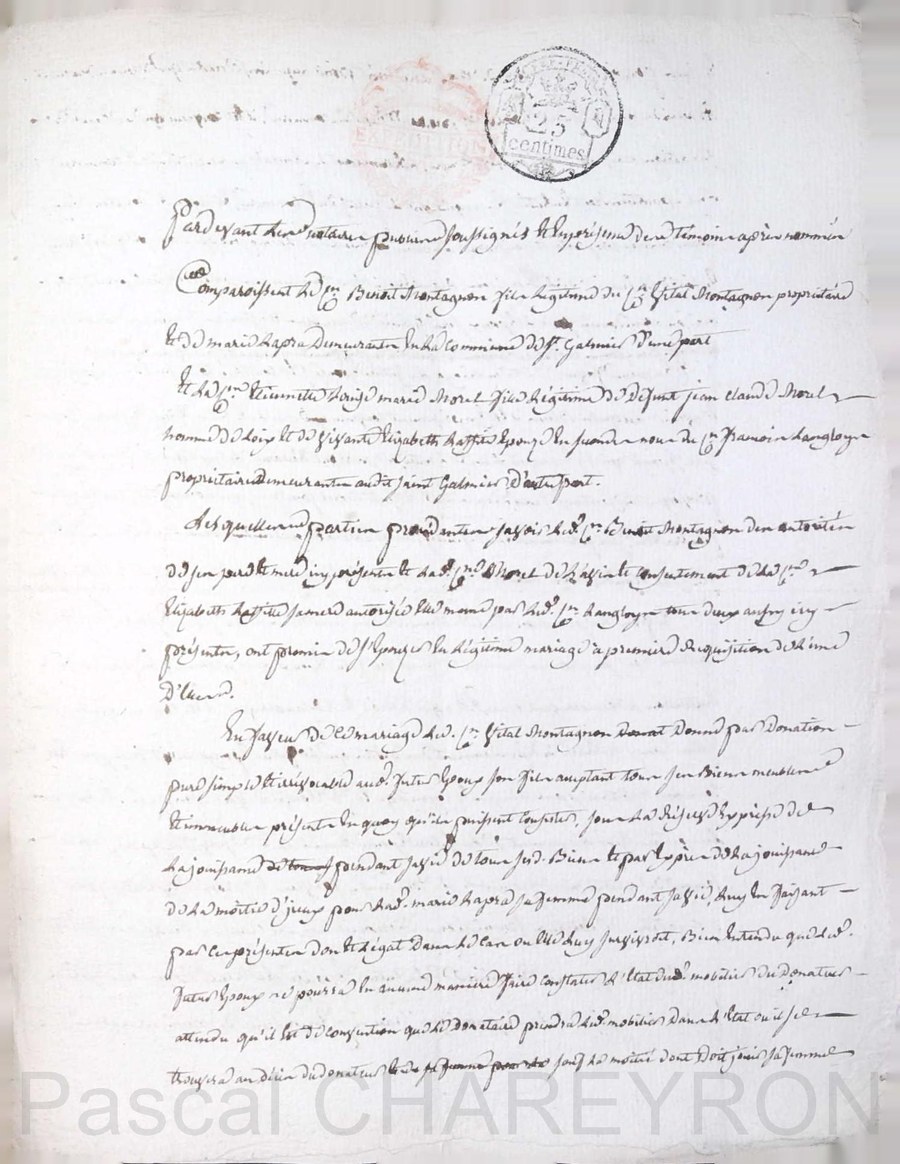 25
centimes
Pardevant le notaire public soussignés et en présence des témoins après nommés
Comparoissent le Cen Benoit Montagnon fils légitime du Cen Vital Montagnon propriétaire
et de marie Lapra demeurants en la commune de St Galmier d'une part
et la Cne Etiennette Louise marie Morel fille légitime de défunt jean claude Morel
homme de loix et de vivante Elizabeth Raffié Epouze en secondes noces du Cen François Langloys
propriétaire demeurants audit saint Galmier d'autre part.
Lesquelles parties procédantes savoir led. Cen Benoit Montagnon des autorités
de ses pere et mere icy présents et lad. Cne Morel de l'avis et consentement de la Cne
Elizabeth Raffié sa mere autorisée elle même par led. Cen Langloys tous deux aussy icy
présents, ont promis de s'Epouzer en légitime mariage a premiere Requisition de l'une
d'elles.
En faveur de ce mariage led. Cen Vital Montagnon donne par donation
pure simple et irrévocable aud. futur Epoux son fils acceptant tous ses Biens meubles
et immeubles présents en quoy qu'ils puissent consister, sous la Réserve Expresse de
la jouissance pendant sa vie de tous sesd. Biens et par Exprès de la jouissance
de la moitié d'iceux pour lad. marie Lapra sa femme pendant sa vie, luy en faisant
par ces présentes don et Légat dans le cas ou elle luy survivroit, Bien entendu que led.
futur Epoux ne pourra en aucune maniere faire constater l'Etat dud. mobilier du Donateur
attendu qu'il est de convention que le Donataire prendra led. mobilier dans l'Etat ou il se
trouvera au décès du donateur sauf la moitié dont doit jouir sa femme
Pascal CHAREYRON